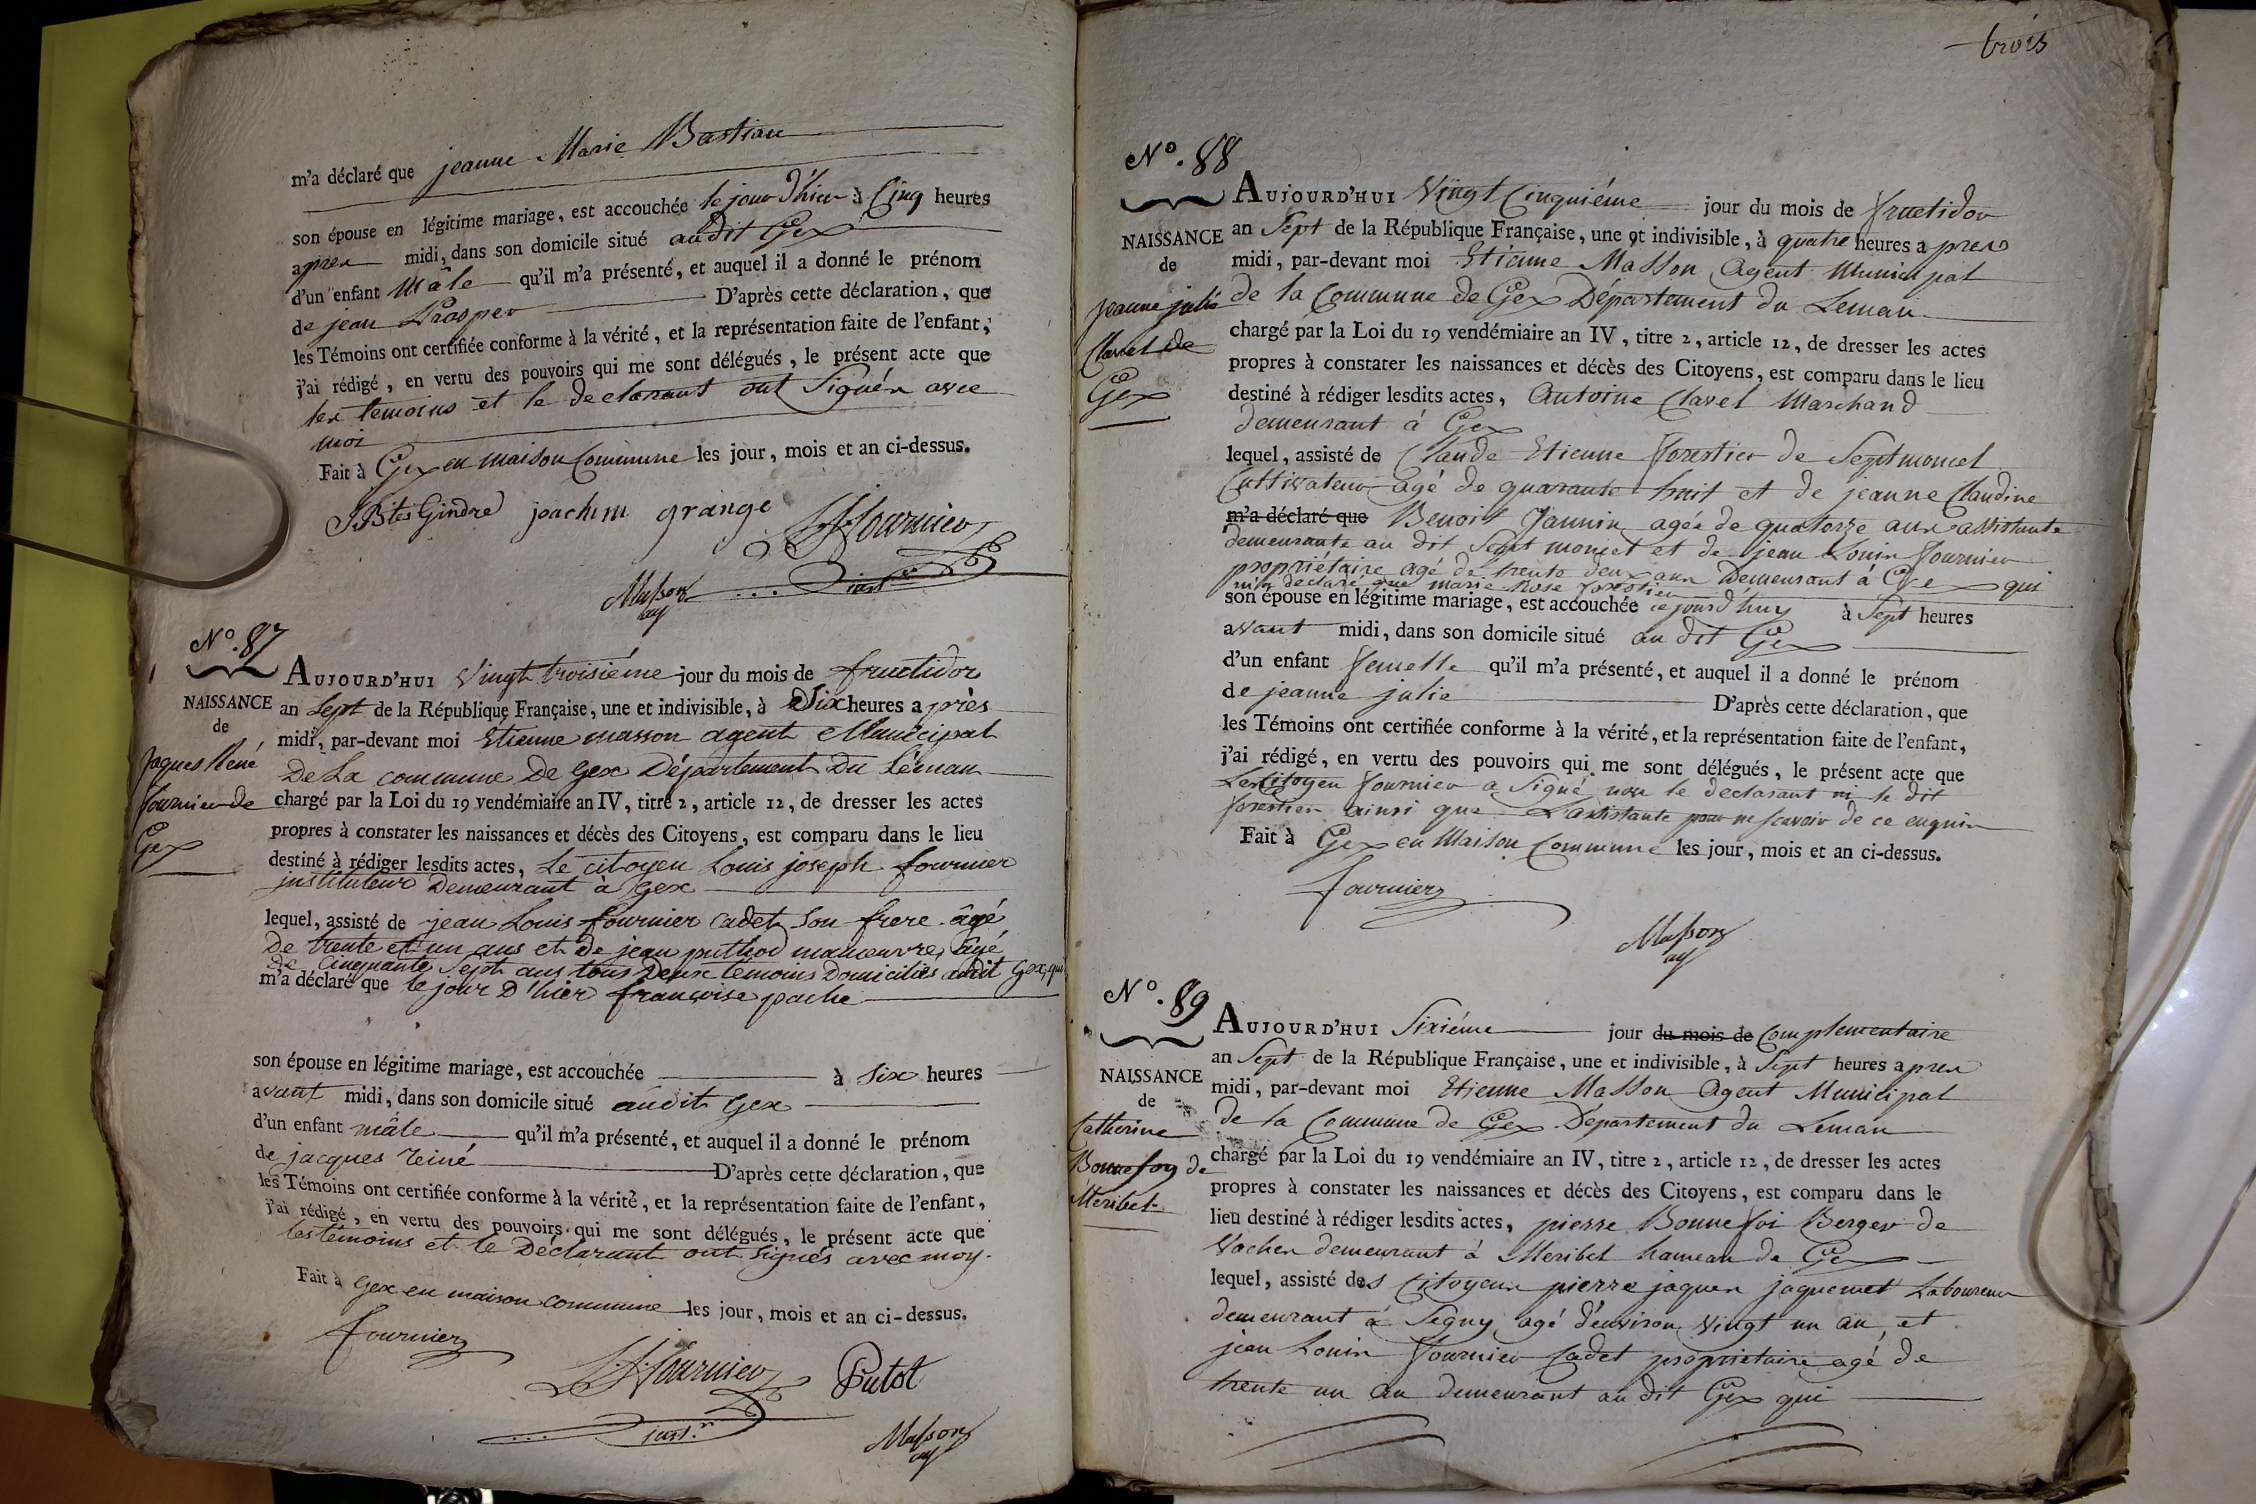 m'a déclaré que jeanne Marie Bastian
son épouse en légitime mariage, est accouchée le jour d'hier à Cinq heures
apres midi, dans son domicile situé audit Gex
d'un enfant Mâle qu'il m'a présenté, et auquel il a donné le prénom
de jean Prosper D'après cette déclaration, que
les Témoins ont certifiée conforme à la vérité, et la représentation faite de l'enfant,
j'ai rédigé, en vertu des pouvoirs qui me sont délégués, le présent acte que
les temoins et le declarant ont Signés avec
moi
Fait à Gex en maison Commune les jour, mois et an ci-dessus.
JBte Gindre joachim grange Fournier
Masson
ag
N°. 87
NAISSANCE
de
Jaques René
fournier de
Gex
AUJOURD'HUI Vingt troisiéme jour du mois de fructidor
an Sept de la République Française, une et indivisible, à Six heures après
midi, par-devant moi Etienne masson agent Municipal
De La commune De Gex Département Du Léman
chargé par la Loi du 19 vendémiaire an IV, titre 2, article 12, de dresser les actes
propres à constater les naissances et décès des Citoyens, est comparu dans le lieu
destiné à rédiger lesdits actes, Le citoyen Louis joseph fournier
instituteur Demeurant à Gex
lequel, assisté de jean Louis fournier cadet son frere âgé
De trente et un ans et de jean puthod manœuvre, âgé
De Cinquante Sept ans tous Deux témoins Domiciliés audit Gex, qui
m'a déclaré que le jour D'hier françoise pache
son épouse en légitime mariage, est accouchée à Six heures
avant midi, dans son domicile situé audit Gex
d'un enfant mâle qu'il m'a présenté, et auquel il a donné le prénom
de jacques reiné D'après cette déclaration, que
les Témoins ont certifiée conforme à la vérité, et la représentation faite de l'enfant,
j'ai rédigé, en vertu des pouvoirs qui me sont délégués, le présent acte que
les témoins et le Déclarant ont signés avec moy.
Fait à Gex en maison commune les jour, mois et an ci-dessus.
fournier
Fournier Putot
Masson
ag
trois
N°. 88
NAISSANCE
de
jeanne julie
Clavel de
Gex
AUJOURD'HUI Vingt Cinquiéme jour du mois de fructidor
an Sept de la République Française, une et indivisible, à quatre heures apres
midi, par-devant moi Etienne Masson Agent Municipal
de la Commune de Gex Département du Leman
chargé par la Loi du 19 vendémiaire an IV, titre 2, article 12, de dresser les actes
propres à constater les naissances et décès des Citoyens, est comparu dans le lieu
destiné à rédiger lesdits actes, Antoine Clavel Marchand
demeurant á Gex
lequel, assisté de Claude Etienne forestier de Septmoncel
Cultivateur agé de quarante huit et de jeanne Claudine
m'a déclaré que Benoit Jannin agée de quatorze ans assistante
demeurante au dit Sept moncel et de jean Louis fournier
propriétaire agé de trente deux ans Demeurant á Gex qui
m'a declaré que marie Rose forestier
son épouse en légitime mariage, est accouchée cejourd'huy à Sept heures
avant midi, dans son domicile situé au dit Gex
d'un enfant femelle qu'il m'a présenté, et auquel il a donné le prénom
de jeanne julie D'après cette déclaration, que
les Témoins ont certifiée conforme à la vérité, et la représentation faite de l'enfant,
j'ai rédigé, en vertu des pouvoirs qui me sont délégués, le présent acte que
Le Citoyen fournier a Signé non le declarant ni le dit
forestier ainsi que L'assistante pour ne scavoir de ce enquis
Fait à Gex en Maison Commune les jour, mois et an ci-dessus.
fournier
Masson
ag
N°. 89
NAISSANCE
de
Catherine
Bonnefoy de
Meribel
AUJOURD'HUI Sixiéme jour du mois de Complementaire
an Sept de la République Française, une et indivisible, à Sept heures apres
midi, par-devant moi Etienne Masson Agent Municipal
de la Commune de Gex Département du Leman
chargé par la Loi du 19 vendémiaire an IV, titre 2, article 12, de dresser les actes
propres à constater les naissances et décès des Citoyens, est comparu dans le
lieu destiné à rédiger lesdits actes, pierre Bonnefoi Berger de
Vaches demeurant á Meribel hameau de Gex
lequel, assisté des Citoyens pierre jaques jaquemet Laboureur
demeurant á Segny agé d'environ vingt un an, et
jean Louis fournier Cadet proprietaire agé de
trente un an demeurant au dit Gex qui